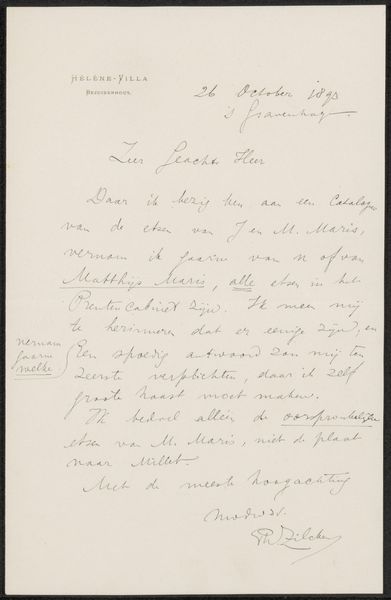 HÉLÈNE-VILLA
BEZUIDENHOUT.
26 October 1890
's Gravenhage.
Zeer Geachte Heer
Daar ik bezig ben aan een Catalogus
van de etsen van J en M. Maris,
vernam ik gaarne van u of van
Matthijs Maris, alle etsen in het
Prentencabinet zijn. Ik meen mij
te herinneren dat er eenige zijn, en
vernam
gaarne
welke
Een spoedig antwoord zou mij ten
zeerste verplichten, daar ik zelf
groote haast moet maken.
Ik bedoel alléén de oorspronkelijke
etsen van M. Maris, niet de plaat
naar Millet.
Met de meeste hoogachting
Ph Zilcken